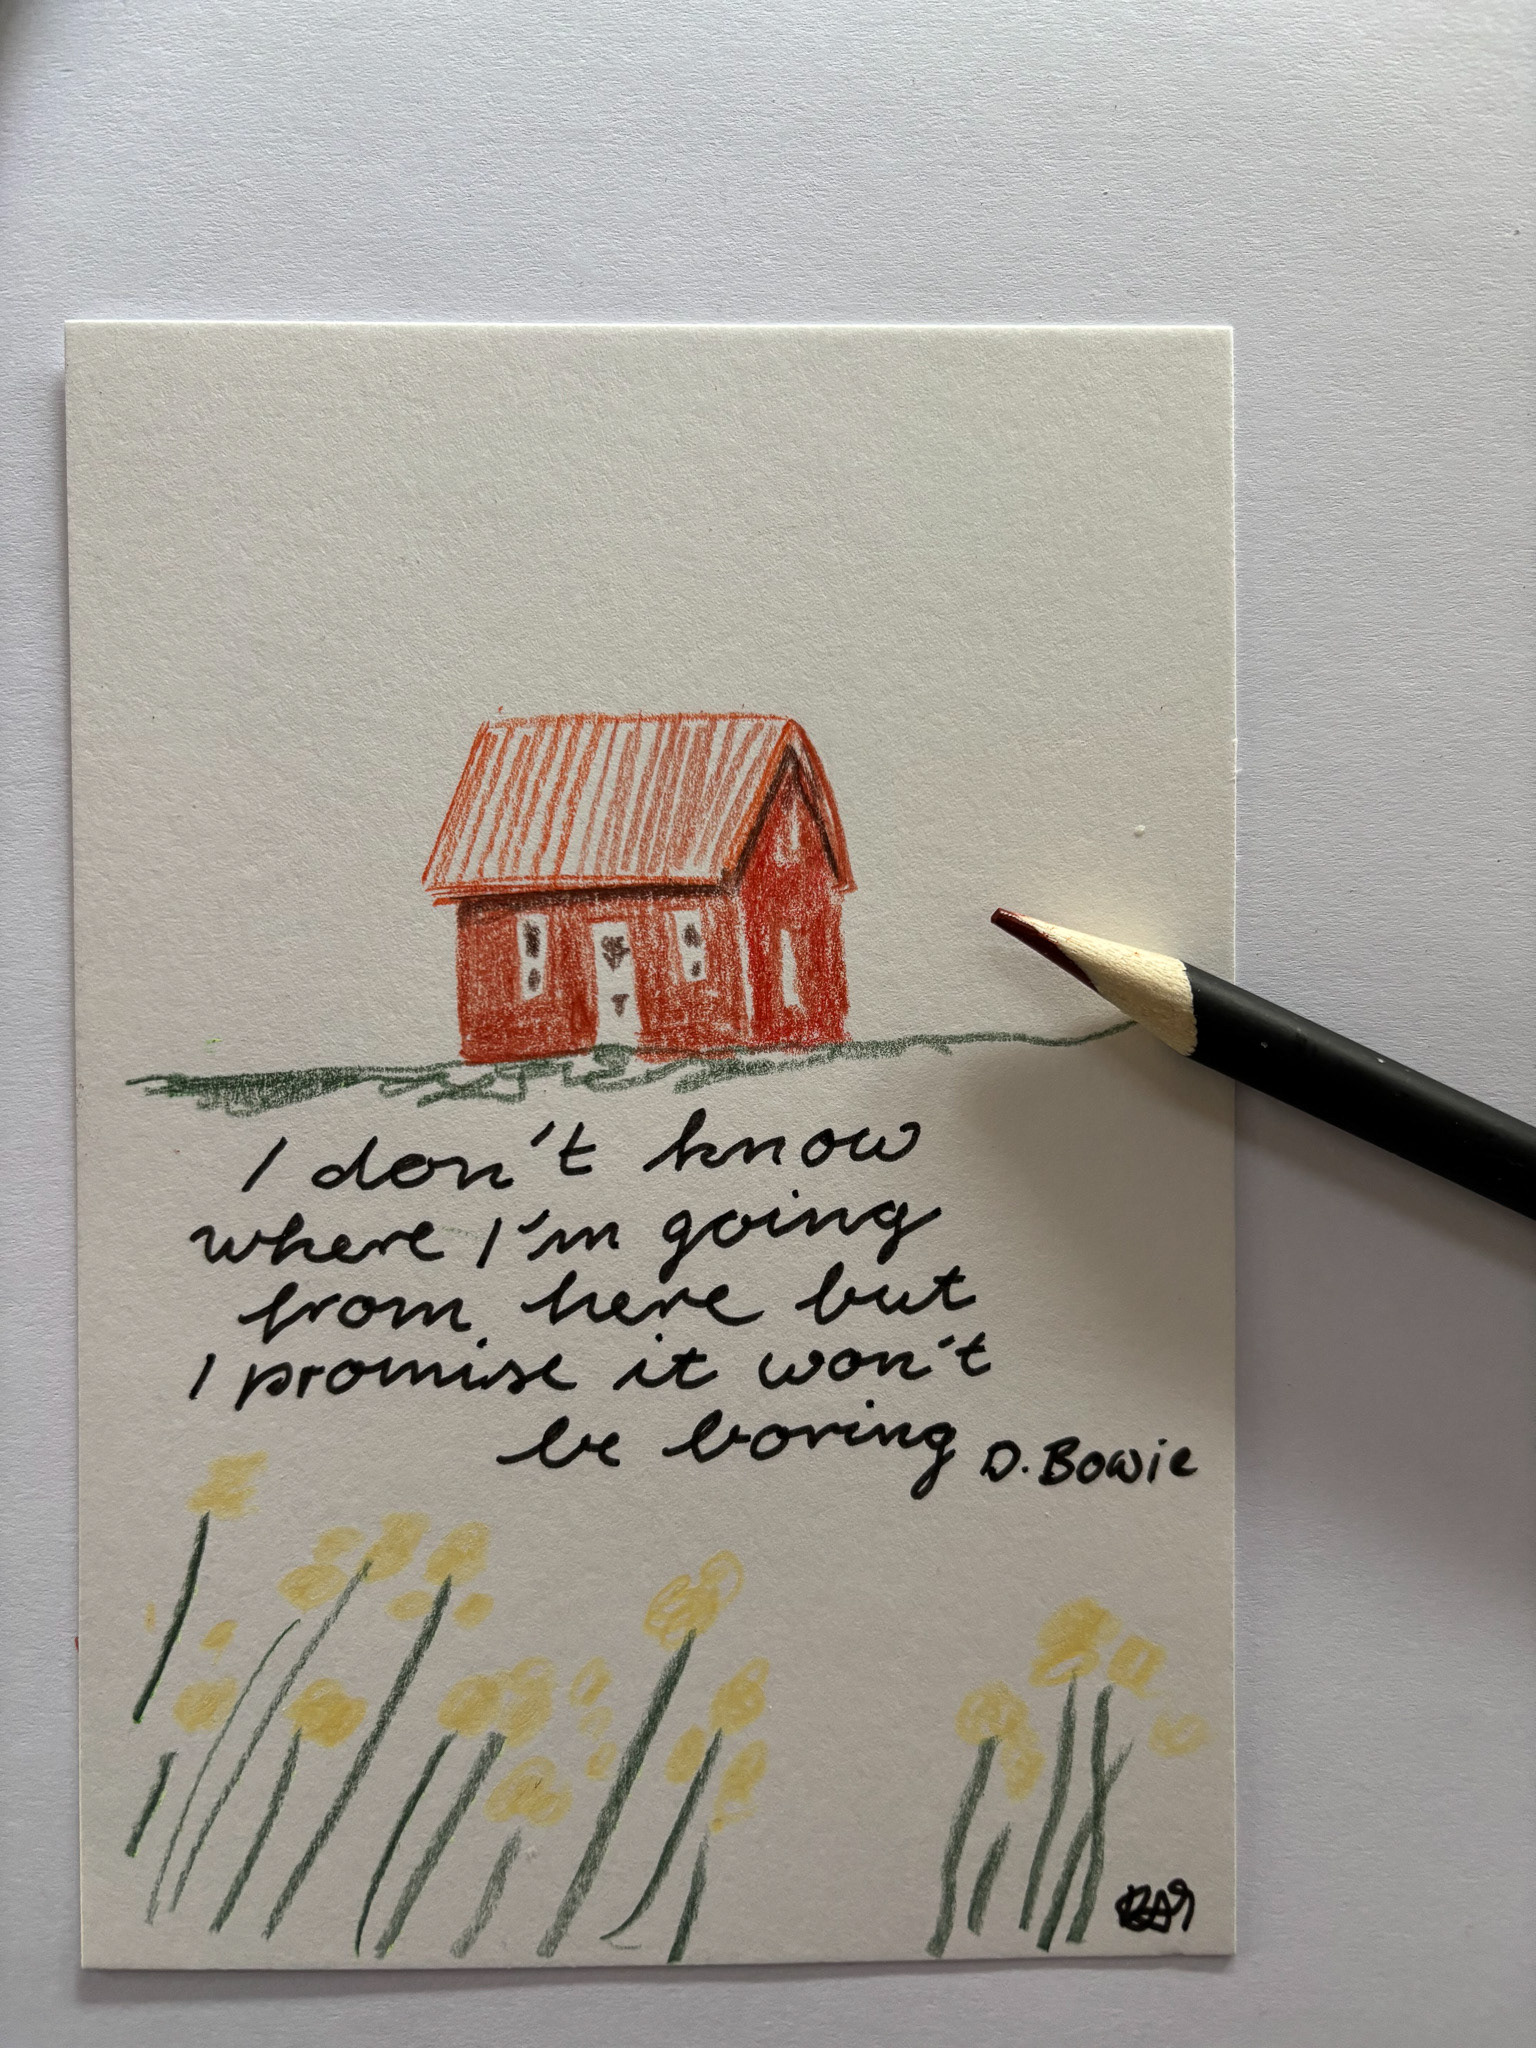 I don't know
where I'm going
from here but
I promise it won't
be boring D. Bowie